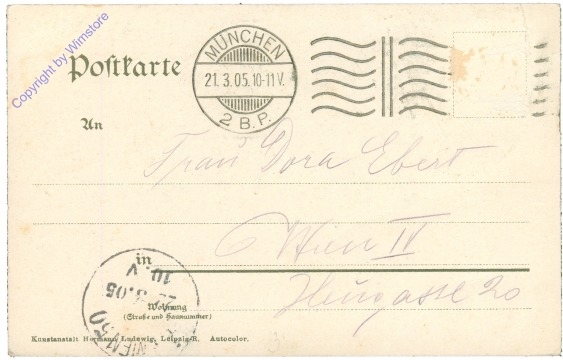 Copyright by Wimstore
Postkarte
MÜNCHEN
21.3.05.10-11V.
2 B.P.
An
Frau Dora Ebert
in
Wien IV
Wohnung
(Straße und Hausnummer)
Heugasse 20
10.V
3.05
WIEN 50
Kunstanstalt Hermann Ludwig, Leipzig-R. Autocolor.